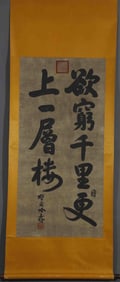 欲窮千里目更
上一層樓